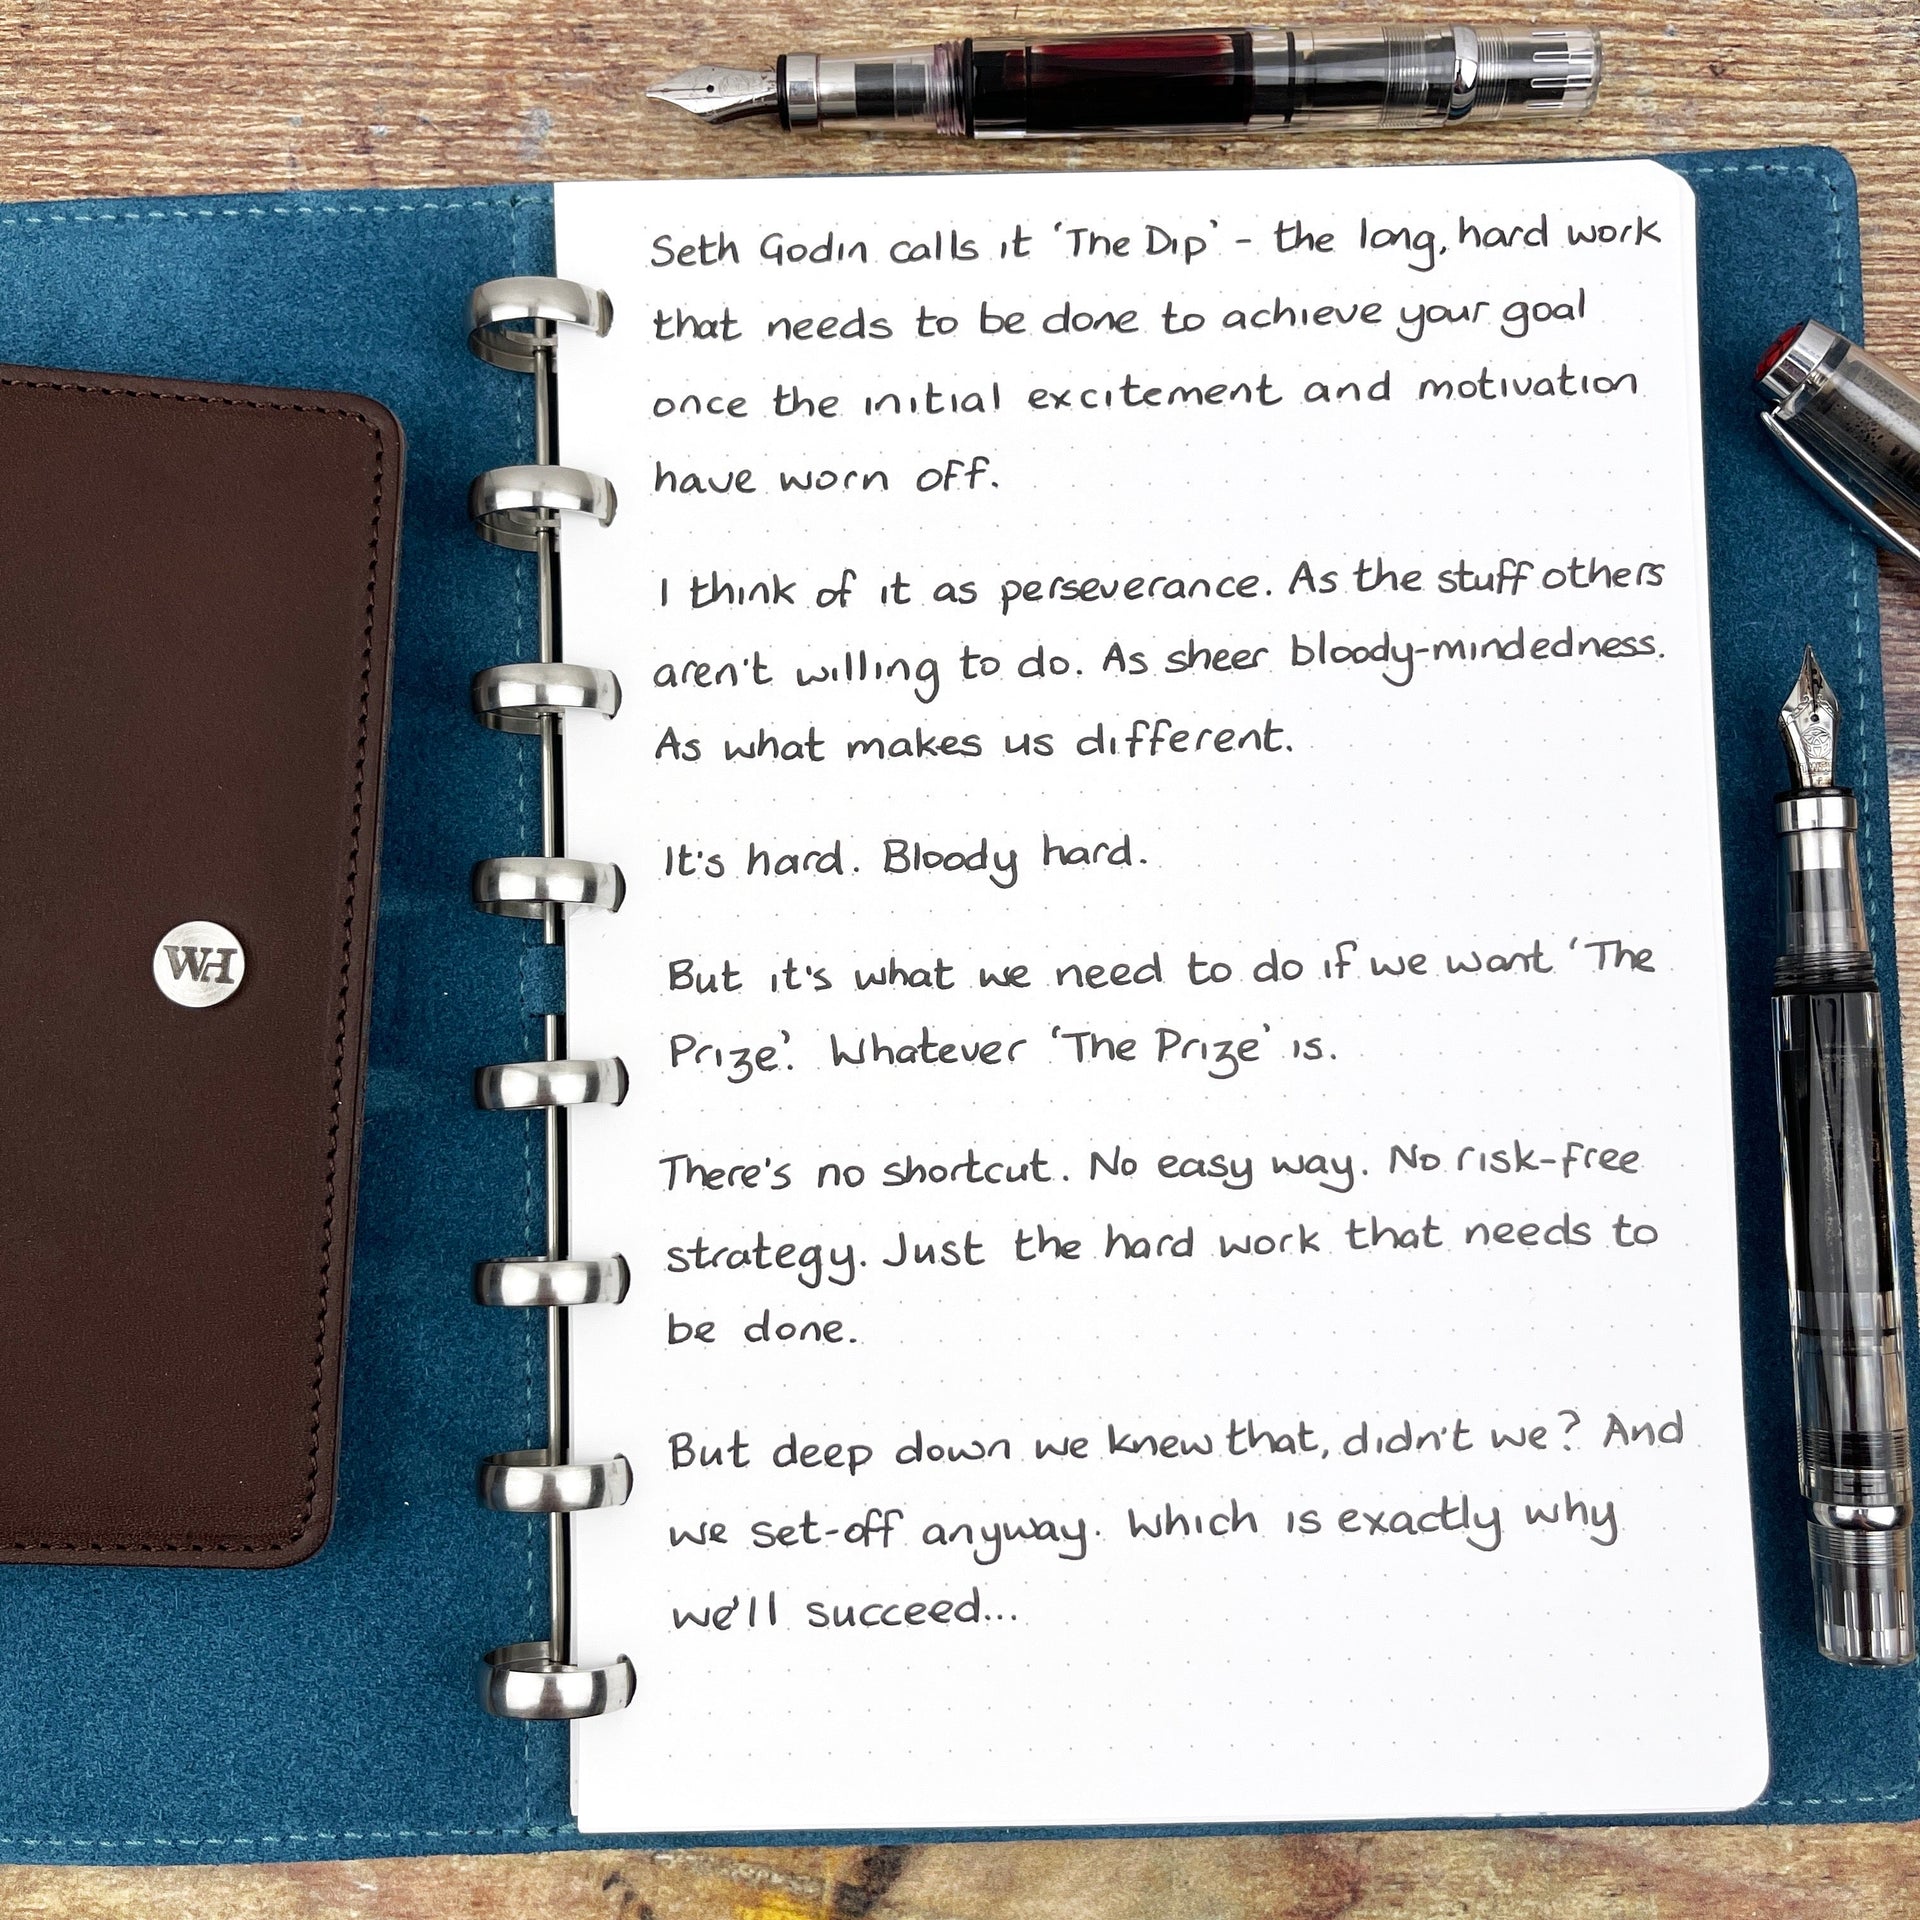 Seth Godin calls it 'The Dip' - the long, hard work
that needs to be done to achieve your goal
once the initial excitement and motivation
have worn off.
I think of it as perseverance. As the stuff others
aren't willing to do. As sheer bloody-mindedness.
As what makes us different.
It's hard. Bloody hard.
But it's what we need to do if we want 'The
Prize'. Whatever 'The Prize' is.
There's no shortcut. No easy way. No risk-free
strategy. Just the hard work that needs to
be done.
But deep down we knew that, didn't we? And
we set-off anyway. Which is exactly why
we'll succeed...
WH